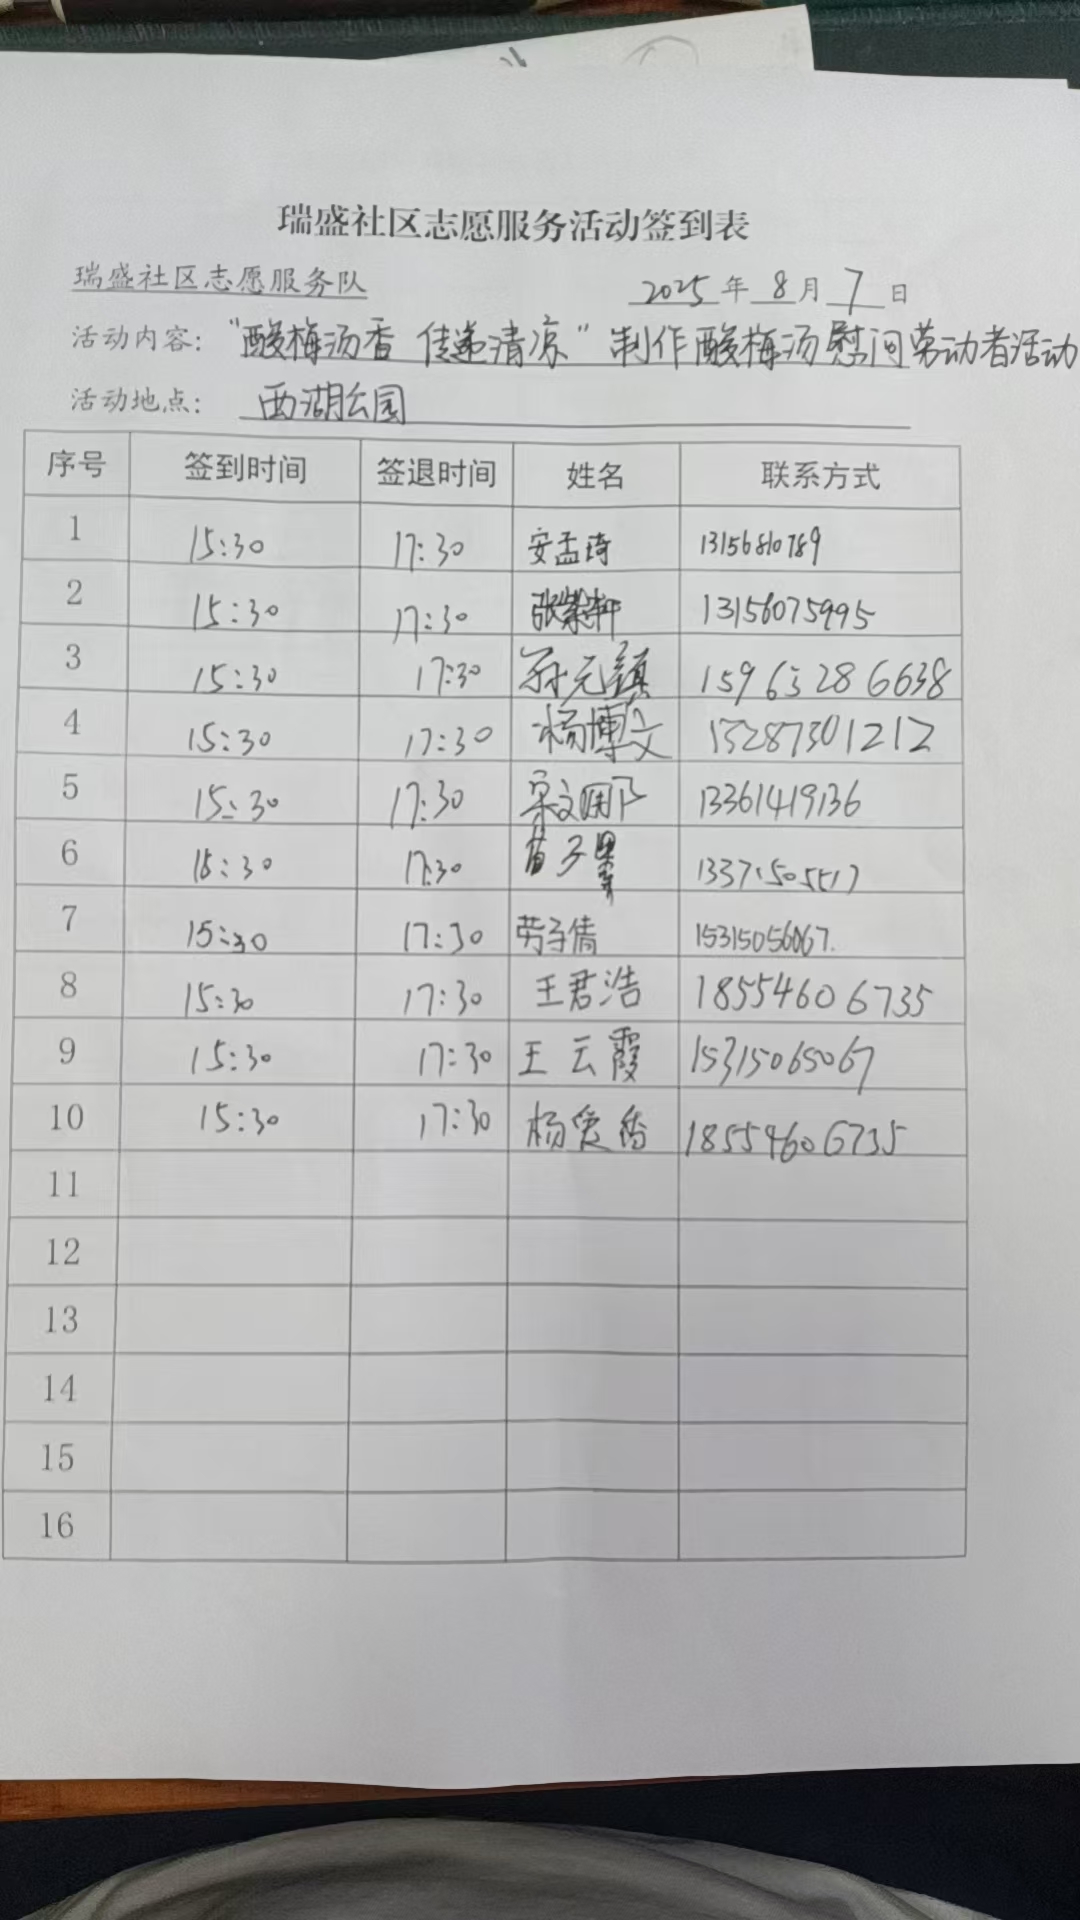 瑞盛社区志愿服务活动签到表
瑞盛社区志愿服务队 2025年8月7日
活动内容："酸梅汤香 传递清凉"制作酸梅汤慰问劳动者活动
活动地点：西湖公园
序号 签到时间 签退时间 姓名 联系方式
1 15:30 17:30 安孟琦 13156810789
2 15:30 17:30 13156075995
3 15:30 17:30 孙元镇 15963286638
4 15:30 17:30 杨博文 15287301212
5 15:30 17:30 13361419136
6 15:30 17:30
7 15:30 17:30 劳子倩 15315056067.
8 15:30 17:30 王君浩 18554606735
9 15:30 17:30 王云霞 15315065067
10 15:30 17:30 杨爱香 18554606735
11
12
13
14
15
16